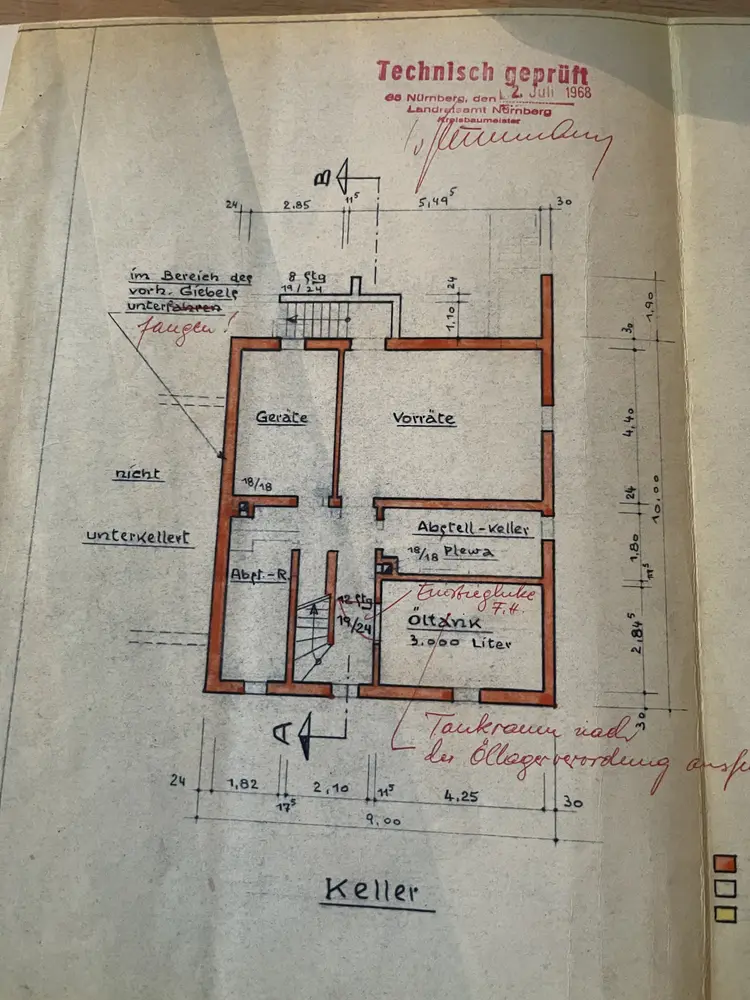 Technisch geprüft
85 Nürnberg, den 2. Juli 1968
Landratsamt Nürnberg
Kreisbaumeister
B
24 2,85 11⁵ 5,49⁵ 30
im Bereich des
vorh. Giebels
unterfahren
fangen!
8 Stg
19/24
24
1,10
30
1,90
Geräte
Vorräte
18/18
4,40
24
10,00
nicht
unterkellert
Abstell-Keller
18/18 Plewa
1,80
11⁵
Abst.-R.
12 Stg
19/24
Einstiegluke
F.H.
Öltank
3.000 Liter
2,84⁵
30
A
Tankraum nach
der Öllagerverordnung
24 1,82 17⁵ 2,10 11⁵ 4,25 30
9,00
Keller